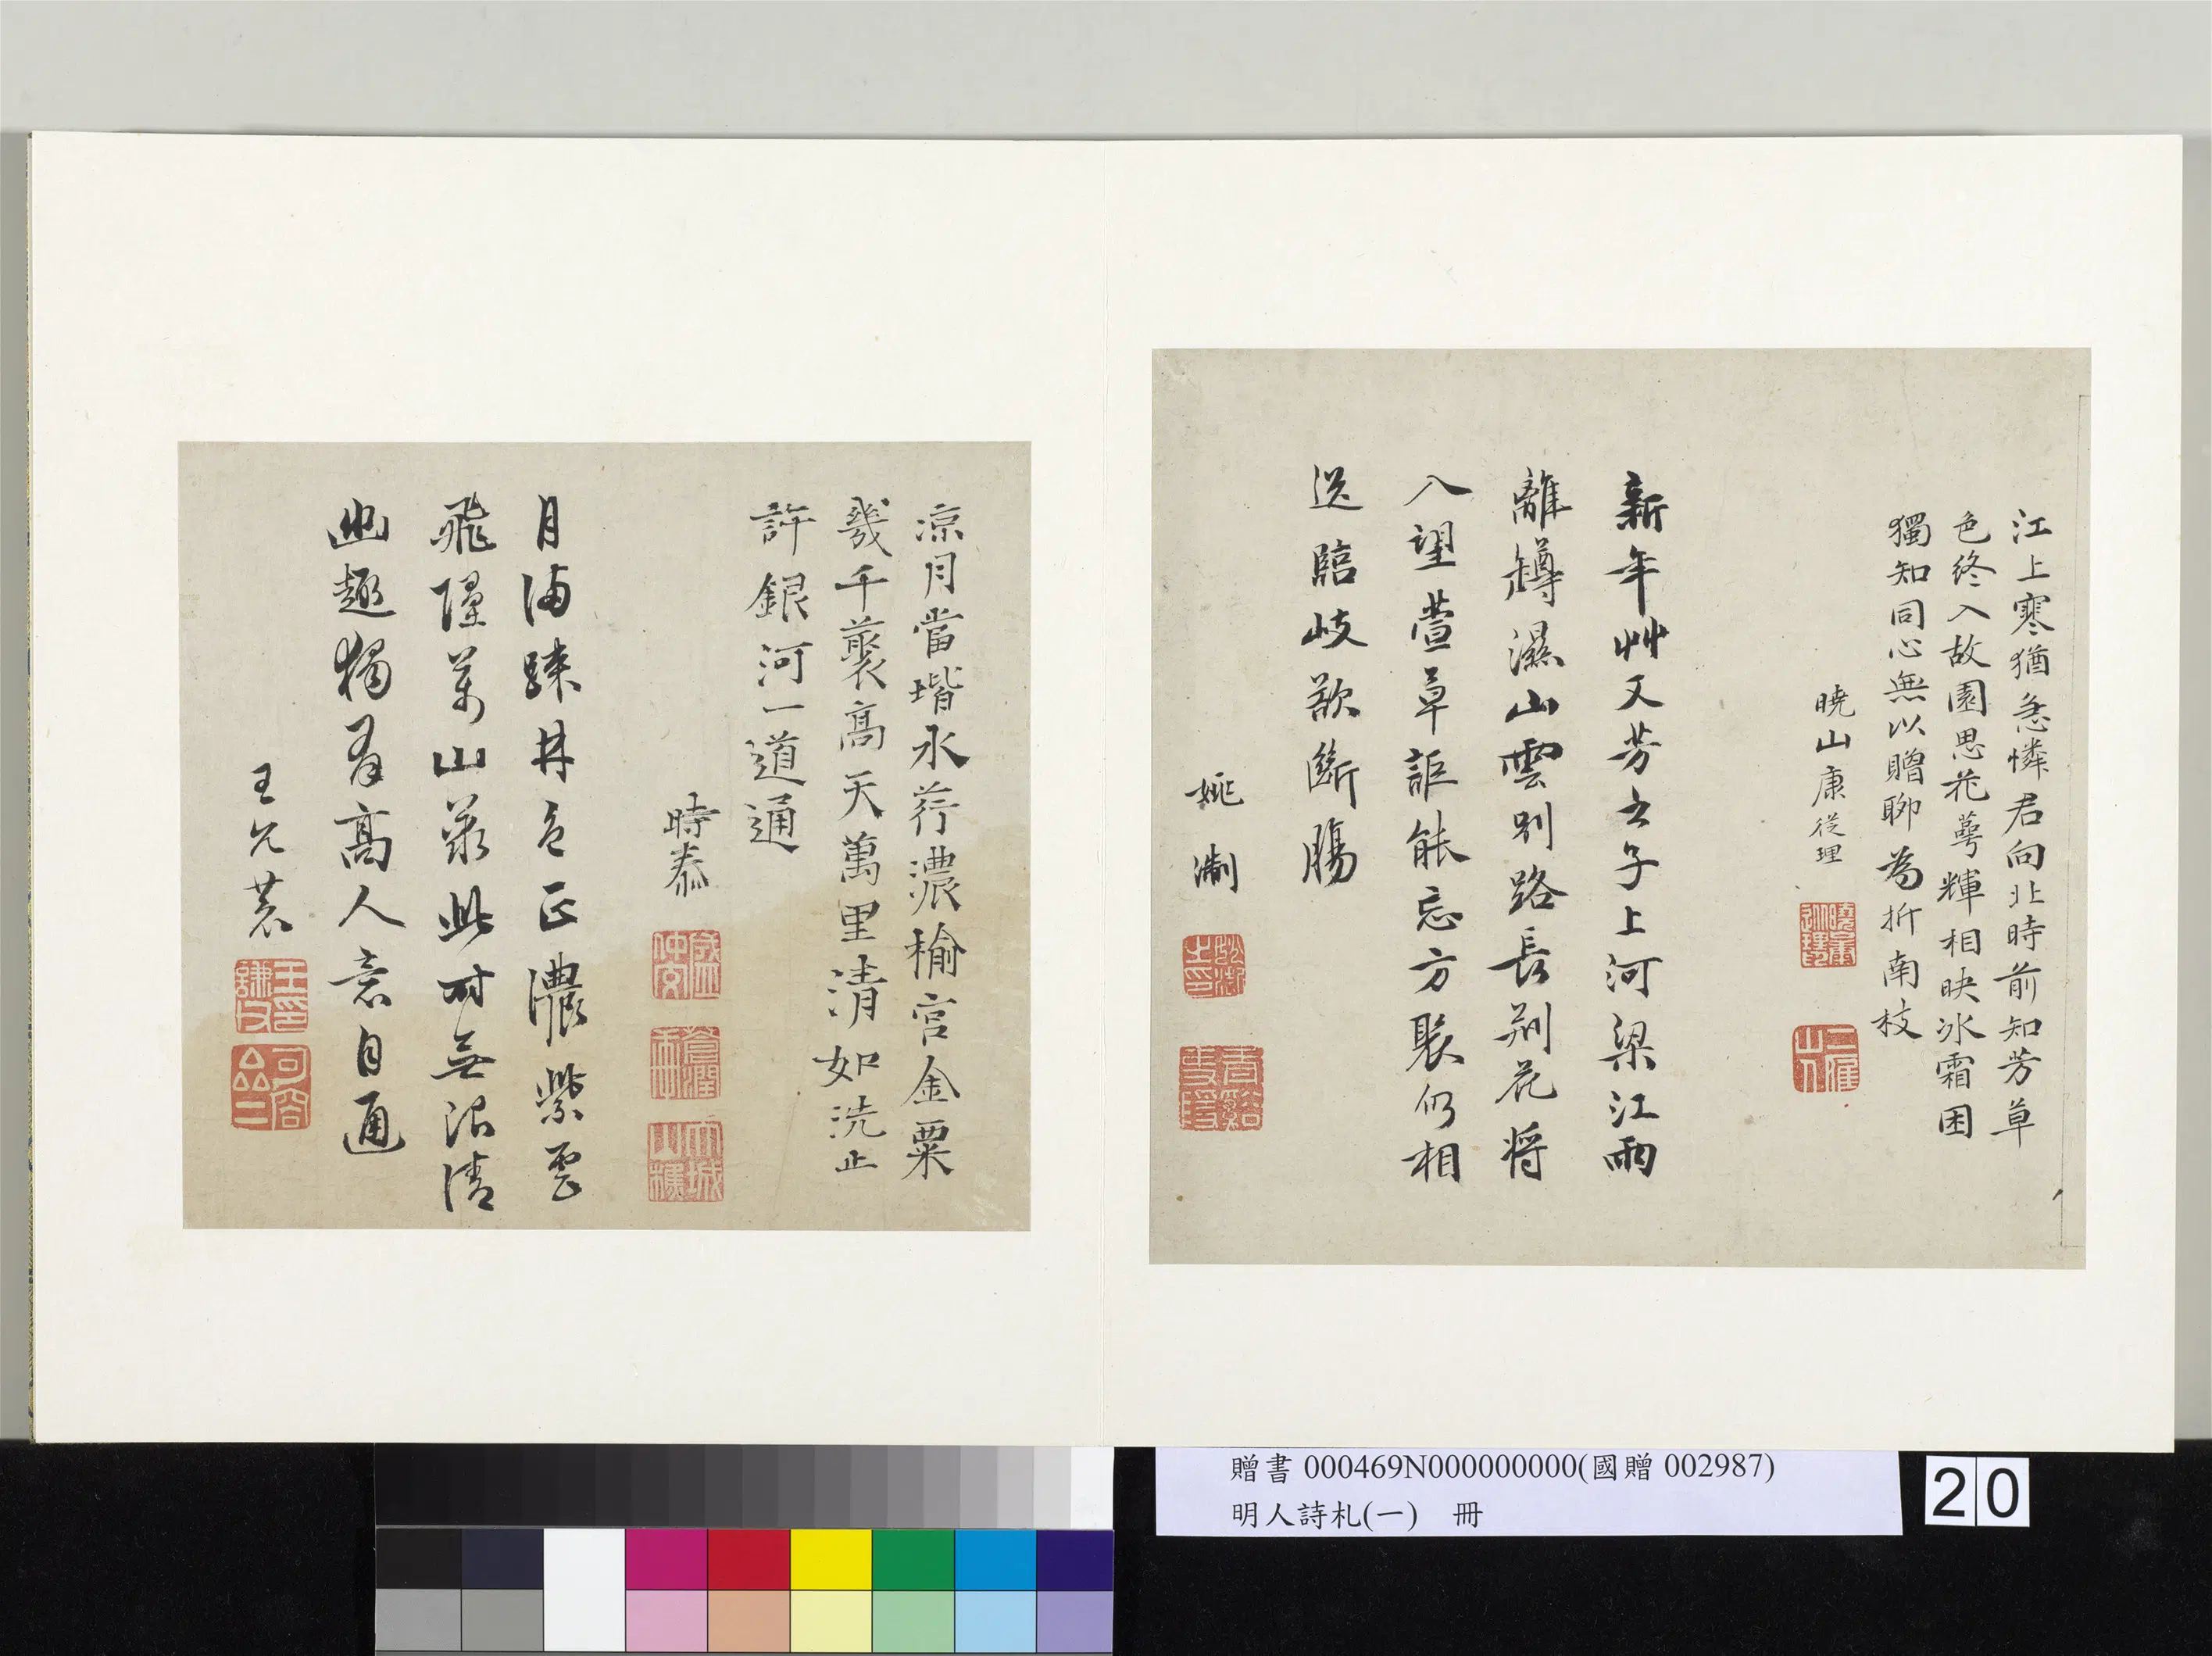 江上寒猶急憐君向北時前知芳草
色終入故園思花萼輝相映冰霜困
獨知同心無以贈聊為折南枝
曉山康從理
二崖山人
新年艸又芳之子上河梁江雨
離罇濕山雲別路長荊花將
入望萱草詎能忘方聚仍相
送臨岐欲斷腸
姚淛
涼月當堦水荇濃榆官金粟
幾千叢高天萬里清如洗止
許銀河一道通
時泰
月滿疎井色正濃紫雲
飛墮萬山叢此時無限清
幽趣獨有高人意自通
王元
贈書 000469N000000000(國贈 002987)
明人詩札(一) 冊
20